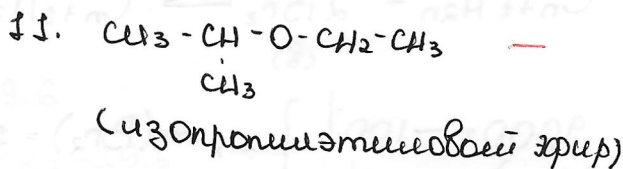 11. CH3 - CH - O - CH2 - CH3
CH3
(изопропилэтиловый эфир)